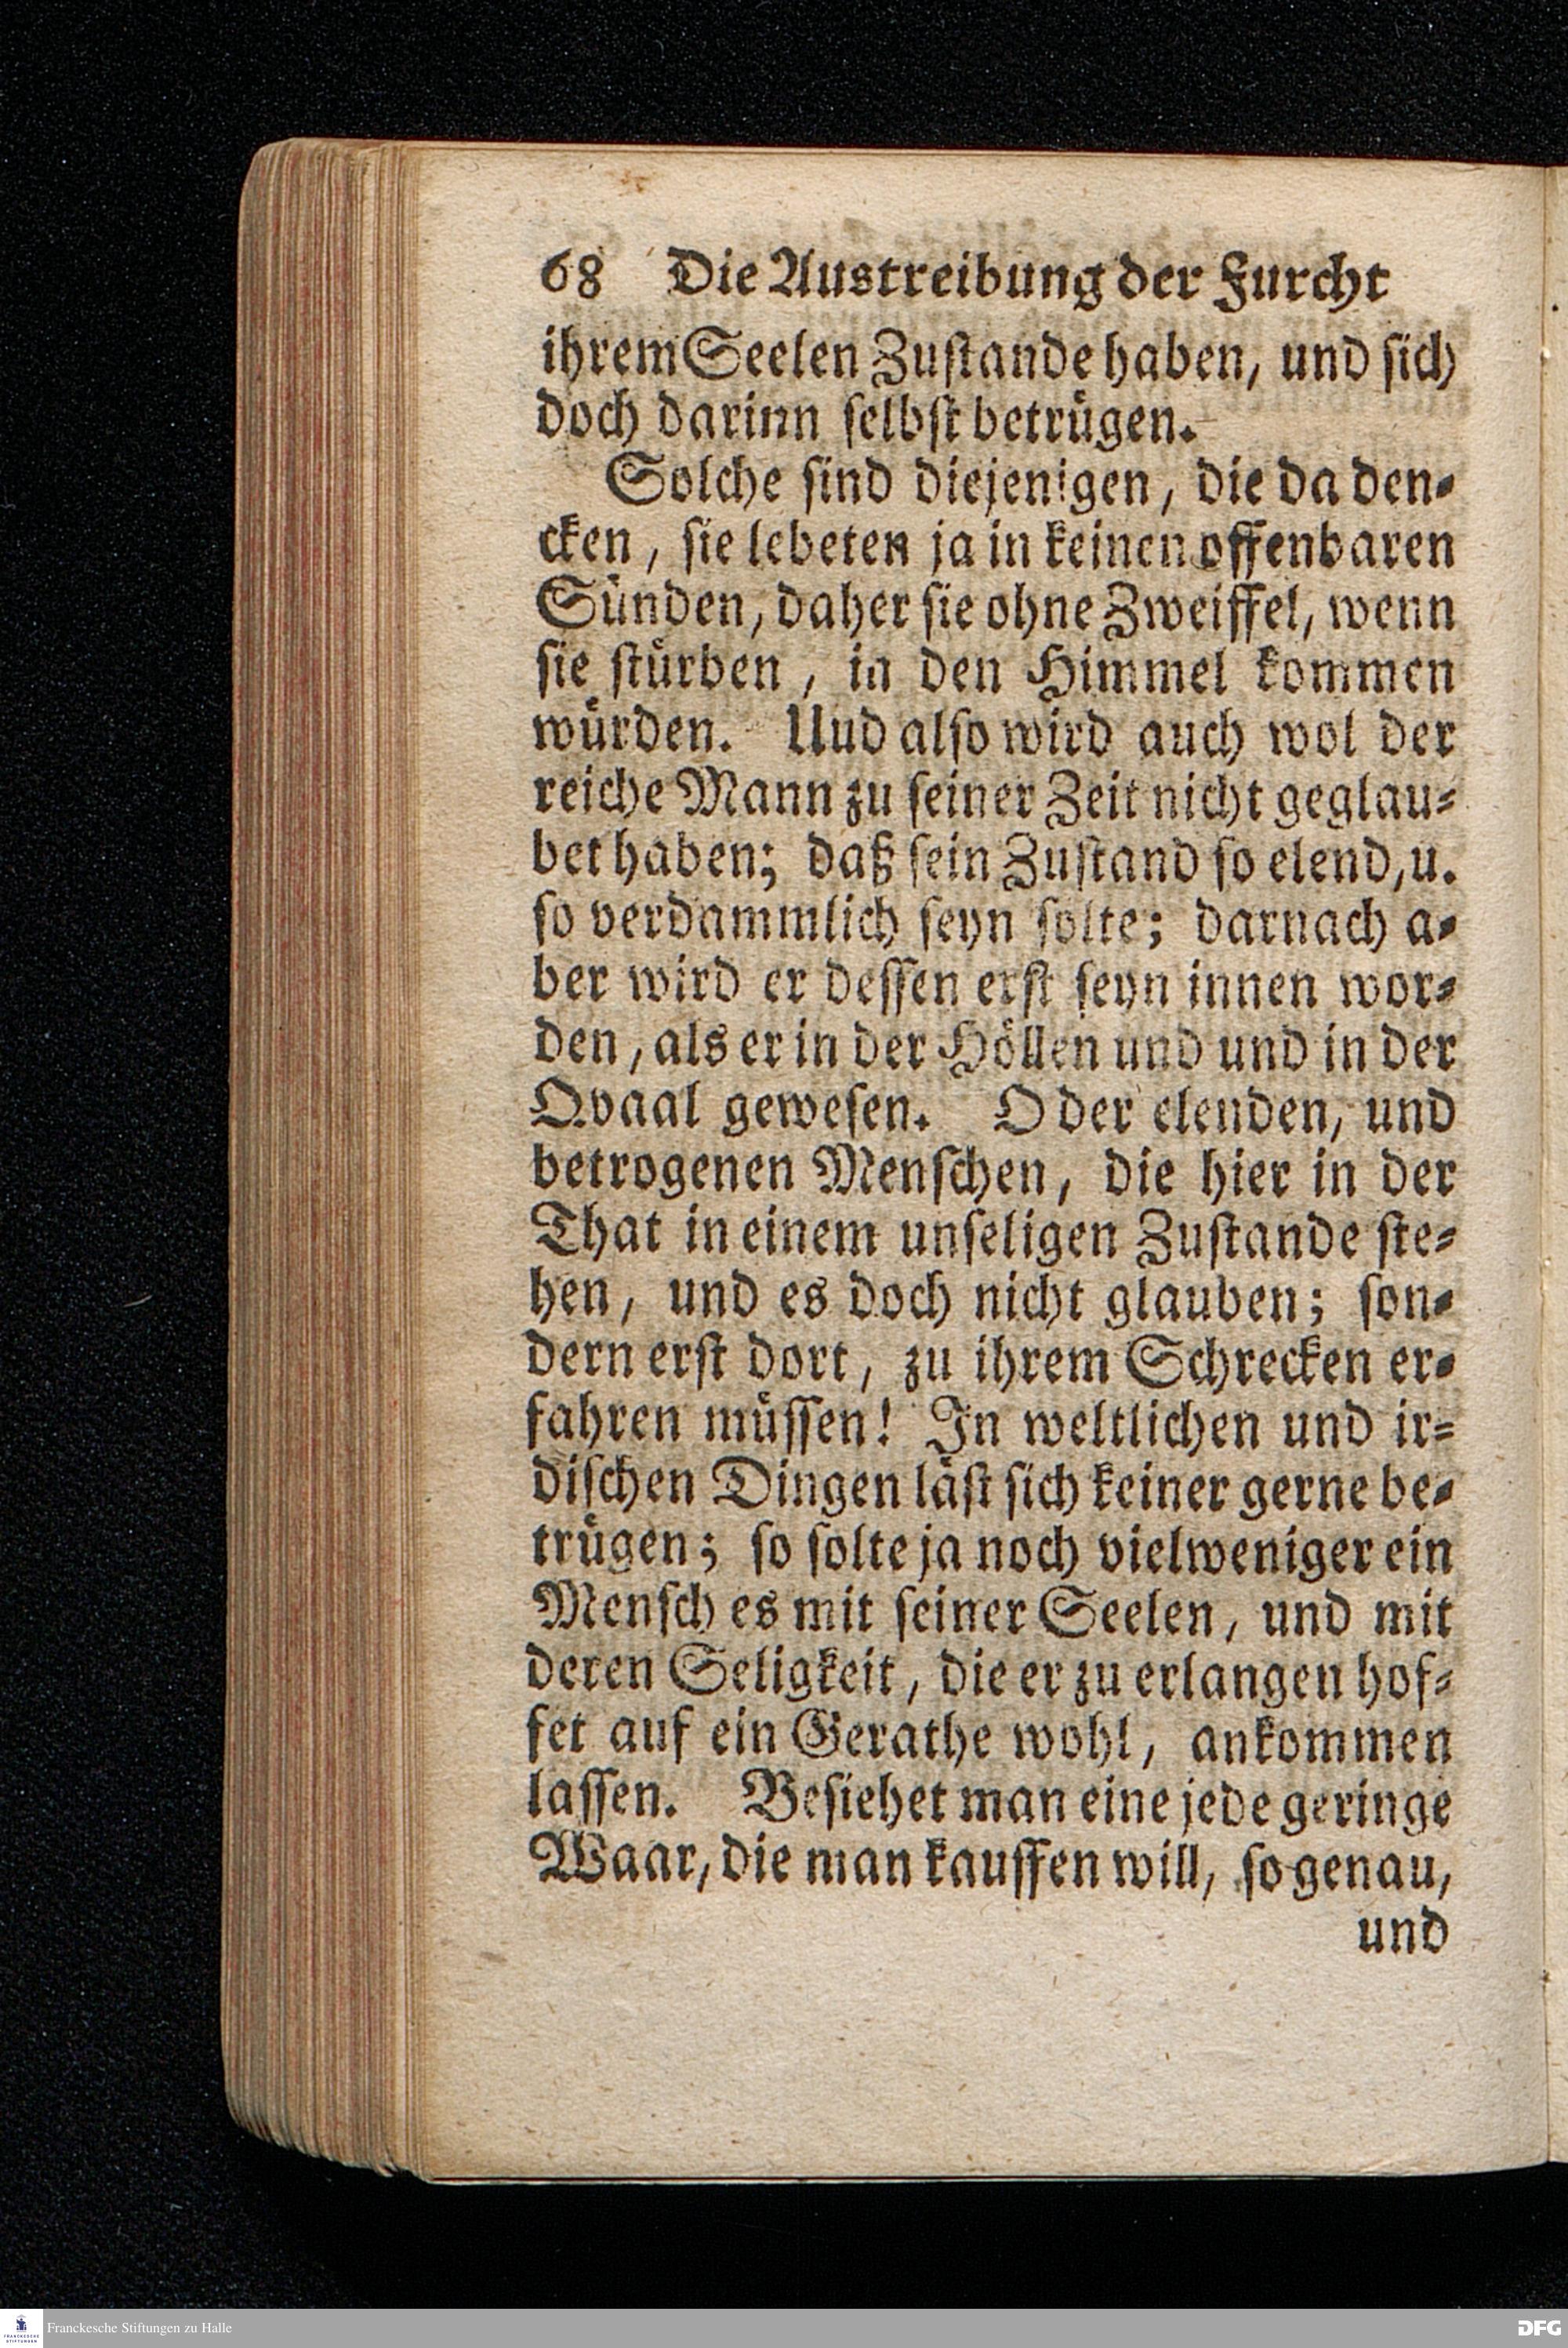 68 Die Austreibung der Furcht
ihrem Seelen Zustande haben, und sich
doch darinn selbst betrügen.
Solche sind diejenigen, die da den-
cken, sie lebeten ja in keinen offenbaren
Sünden, daher sie ohne Zweiffel, wenn
sie stürben, in den Himmel kommen
würden. Uud also wird auch wol der
reiche Mann zu seiner Zeit nicht geglau-
bet haben; daß sein Zustand so elend, u.
so verdammlich seyn solte; darnach a-
ber wird er dessen erst seyn innen wor-
den, als er in der Höllen und und in der
Qvaal gewesen. O der elenden, und
betrogenen Menschen, die hier in der
That in einem unseligen Zustande ste-
hen, und es doch nicht glauben; son-
dern erst dort, zu ihrem Schrecken er-
fahren müssen! In weltlichen und ir-
dischen Dingen läst sich keiner gerne be-
trügen; so solte ja noch vielweniger ein
Mensch es mit seiner Seelen, und mit
deren Seligkeit, die er zu erlangen hof-
fet auf ein Gerathe wohl, ankommen
lassen. Besiehet man eine jede geringe
Waar, die man kauffen will, so genau,
und
Franckesche Stiftungen zu Halle
FRANCKESCHE
STIFTUNGEN
DFG